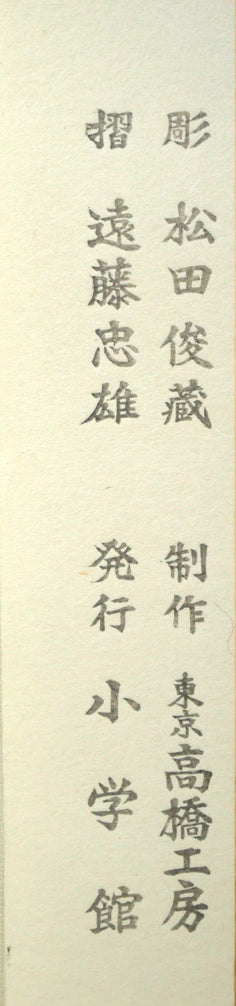 彫 松田俊蔵 制作 東京高橋工房
摺 遠藤忠雄 発行 小学館